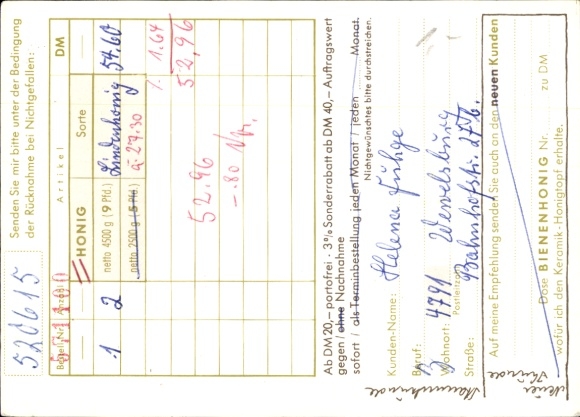 520615
Senden Sie mir bitte unter der Bedingung
der Rücknahme bei Nichtgefallen:
Bestell.Nr. Anzahl Artikel Sorte DM
571100
HONIG
1 2 netto 4500 g (9 Pfd.) Lindenhonig 54.60
netto 2500 g (5 Pfd.) à 27.30
1.64
52,96
52.96
-.80
Ab DM 20,– portofrei · 3% Sonderrabatt ab DM 40,– Auftragswert
gegen / ohne Nachnahme
sofort / als Terminbestellung jeden Monat / jeden Monat.
Nichtgewünschtes bitte durchstreichen.
Kunden-Name: Helena Juhge
Beruf:
Wohnort: 4791 Wewelsburg
Postleitzahl
Straße: Bahnhofstr. 27b.
Stammkunde
Auf meine Empfehlung senden Sie auch an den neuen Kunden
Dose BIENENHONIG Nr. zu DM
wofür ich den Keramik-Honigtopf erhalte.
Neuer
Kunde